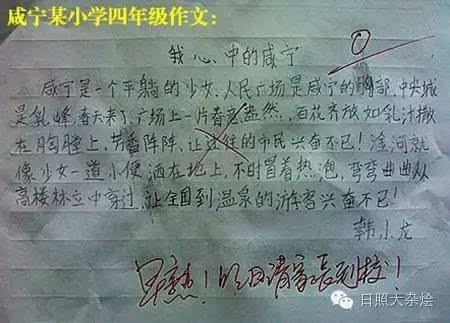 咸宁某小学四年级作文：
我心中的咸宁
咸宁是一个平躺的少女，人民广场是咸宁的胸部，中央城
是乳峰，春天来了，广场上一片春意盎然，百花齐放如乳汁撒
在胸膛上，芳香阵阵，让过往的市民兴奋不已！淦河就
像少女一道小便洒在地上，不时冒着热泡，弯弯曲曲从
高楼林立中穿过，让全国到温泉的游客兴奋不已！
韩小龙
早熟！明日请家长到校！
日照大杂烩